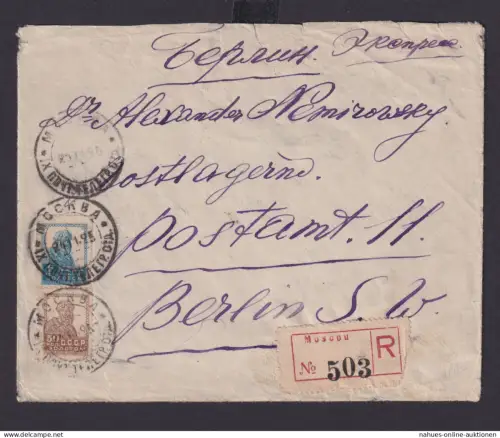 Берлин. Экспресс.
Dr. Alexander Nemirowsky.
Postlagernd.
Postamt. 11.
Berlin S. W.
МОСКВА
МОСКВА
МОСКВА
СССР
Moscou
R
№ 503
© nahues-online-auktionen
nahues-online-auktionen